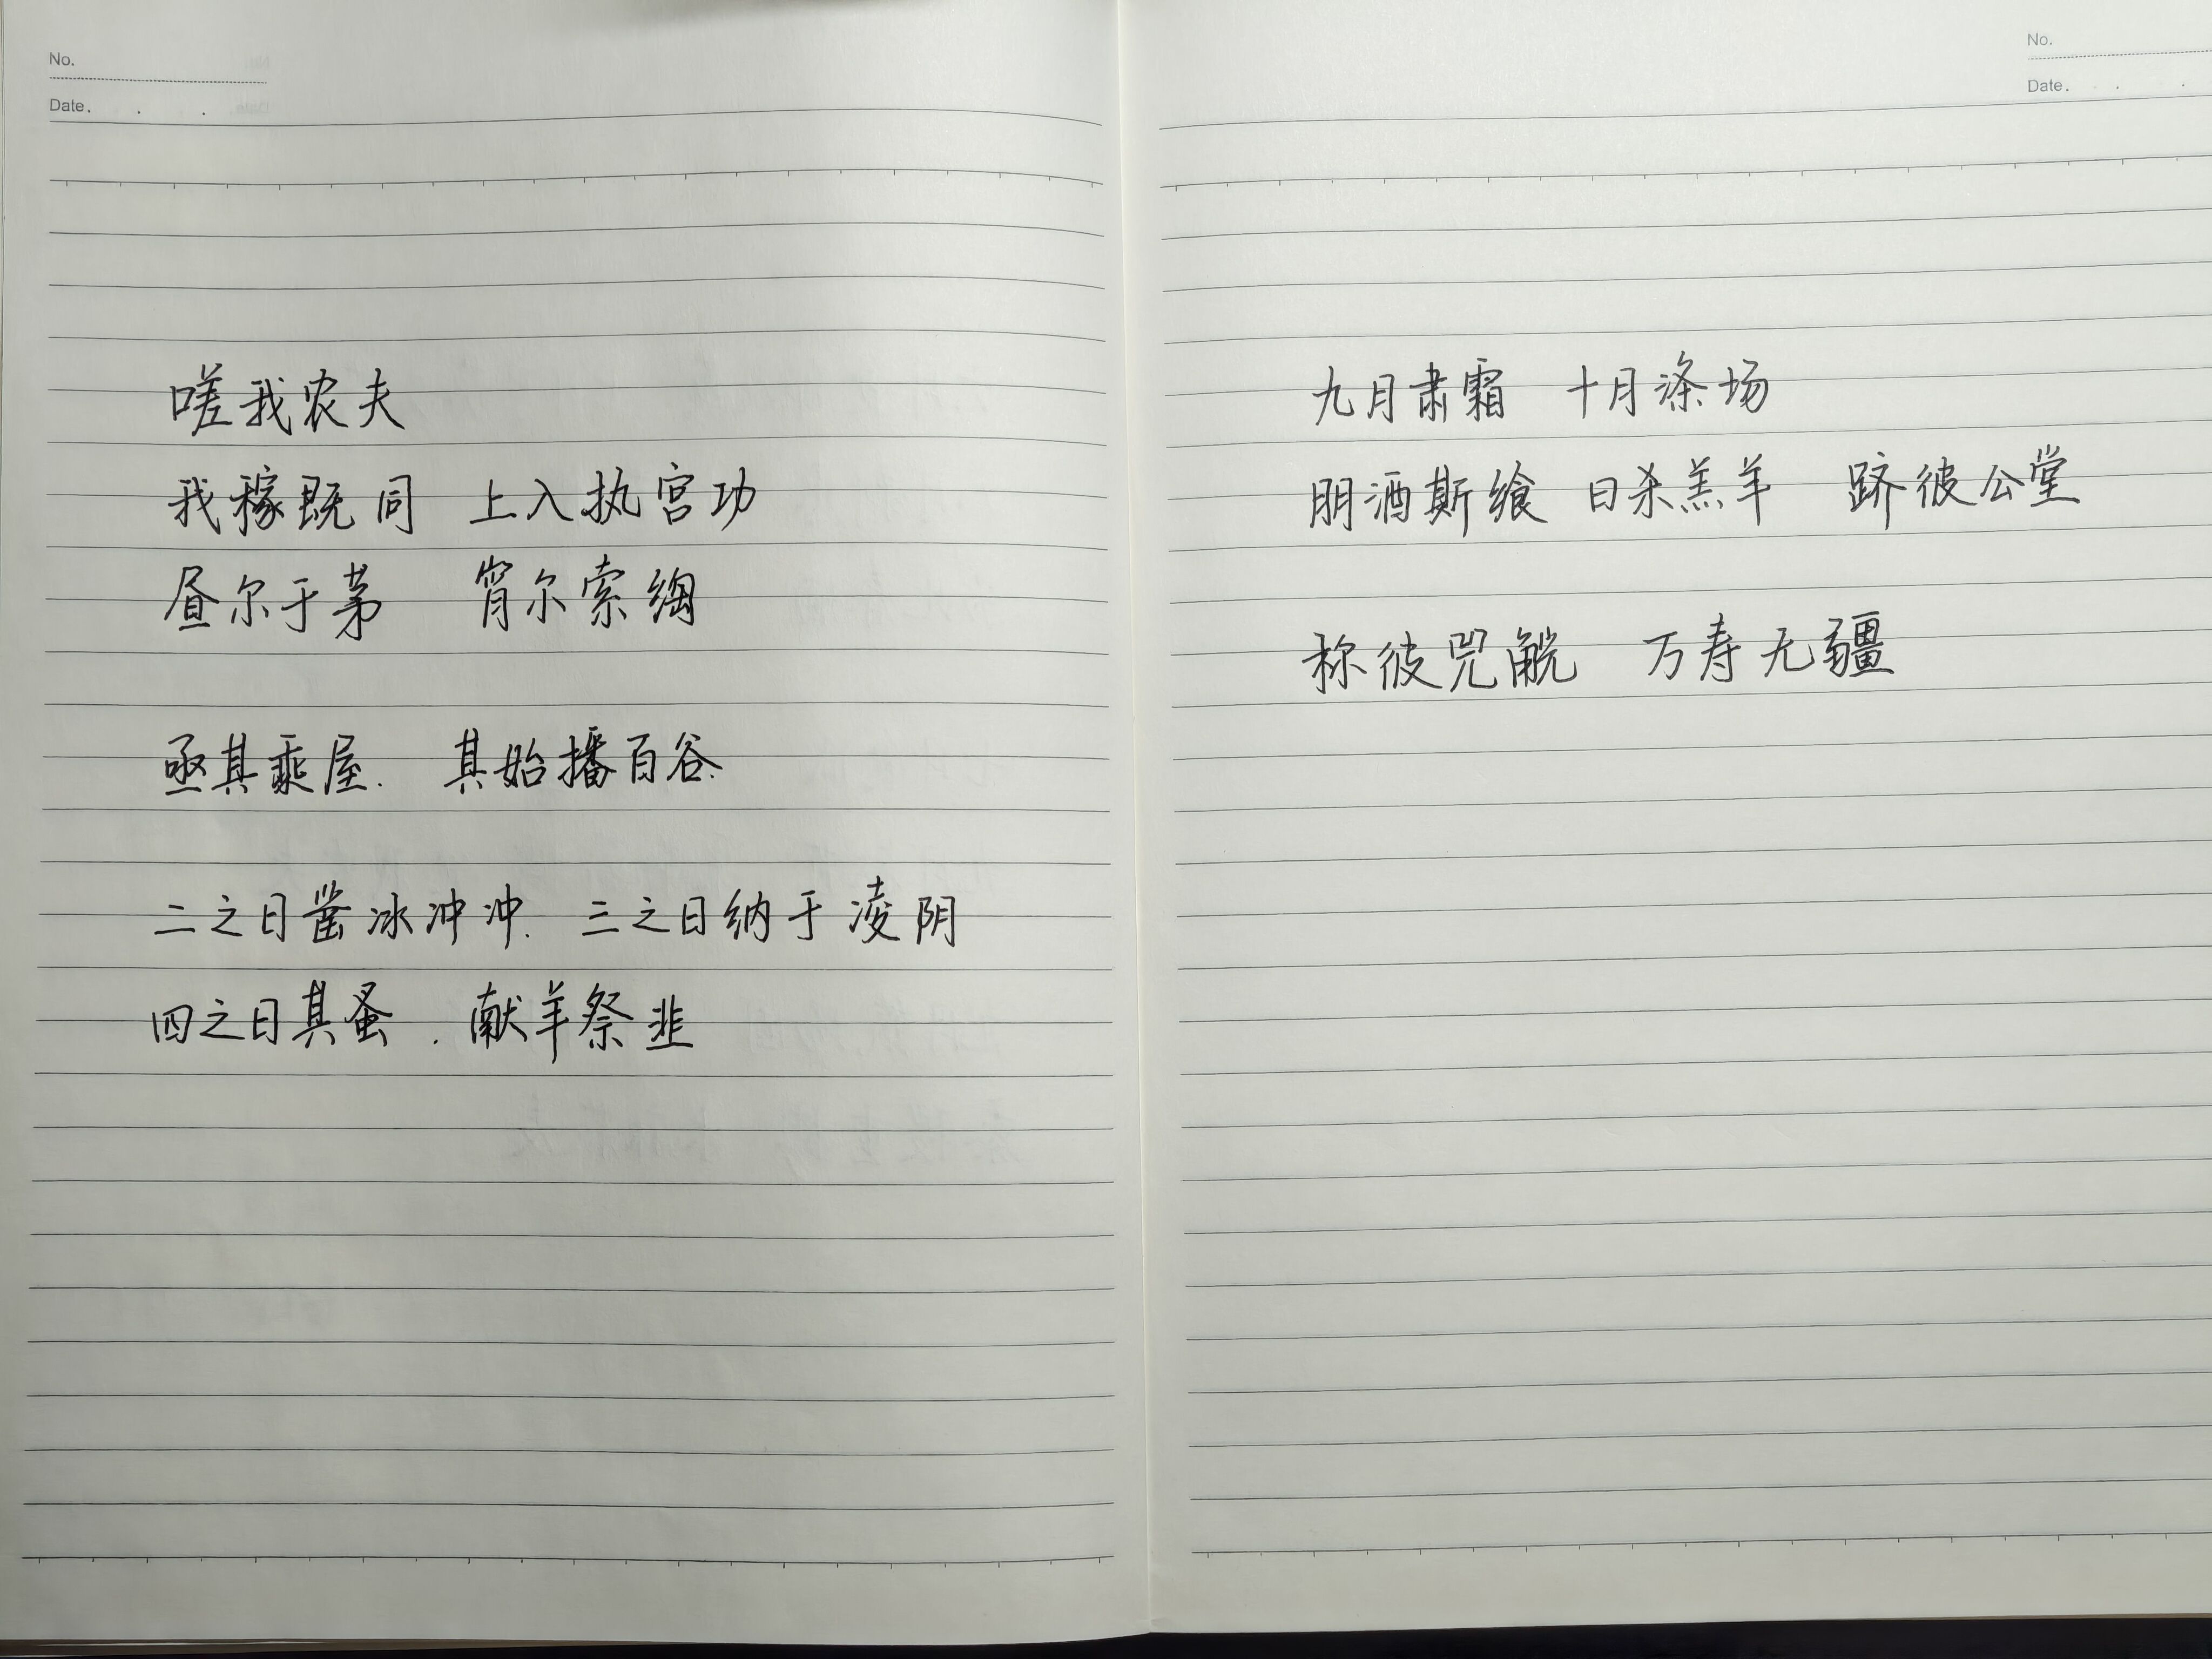 No.
Date.
嗟我农夫
我稼既同 上入执宫功
昼尔于茅 宵尔索绹
亟其乘屋. 其始播百谷.
二之日凿冰冲冲. 三之日纳于凌阴
四之日其蚤. 献羊祭韭
No.
Date.
九月肃霜 十月涤场
朋酒斯飨 日杀羔羊 跻彼公堂
称彼兕觥 万寿无疆